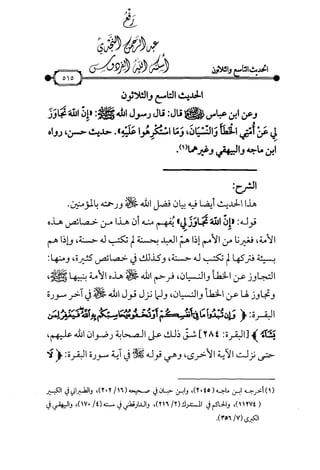 رفع
عبد الرحمن النجدي
أسكنه الله الفردوس
الحديث التاسع والثلاثون
٥١٥
الحديث التاسع والثلاثون
وعن ابن عباس ﷺ قال: قال رسول الله: «إِنَّ اللهَ تَجَاوَزَ
لِي عَنْ أُمَّتِي الْخَطَأَ وَالنِّسْيَانَ، وَمَا اسْتُكْرِهُوا عَلَيْهِ». حديث حسن، رواه
ابن ماجه والبيهقي وغيرهما(١).
الشرح:
هذا الحديث أيضا فيه بيان فضل الله ورحمته بالمؤمنين.
قوله: «إِنَّ اللهَ تَجَاوَزَ لِي» يُفهم منه أن هذا من خصائص هذه
الأمة، فغيرنا من الأمم إذا هم العبد بحسنة لم تكتب له حسنة، وإذا هم
بسيئة فتركها لم تكتب له حسنة، وكذلك في خصائص كثيرة، ومنها:
التجاوز عن الخطأ والنسيان، فرحم الله هذه الأمة بنبيها ﷺ،
وتجاوز لها عن الخطأ والنسيان، ولما نزل قول الله في آخر سورة
البقرة: ﴿وَإِن تُبْدُوا مَا فِي أَنفُسِكُمْ أَوْ تُخْفُوهُ يُحَاسِبْكُم بِهِ اللَّهُ فَيَغْفِرُ لِمَن
يَشَاءُ﴾ [البقرة: ٢٨٤] شق ذلك على الصحابة رضوان الله عليهم،
حتى نزلت الآية الأخرى، وهي قوله في آية سورة البقرة: ﴿لَا
(١) أخرجه ابن ماجه (٢٠٤٥)، وابن حبان في صحيحه (١٦/ ٢٠٢)، والطبراني في الكبير
(١١٢٧٤)، والحاكم في المستدرك (٢/ ٢١٦)، والدارقطني في سننه (٤/ ١٧٠)، والبيهقي في
الكبرى (٧/ ٣٥٦).